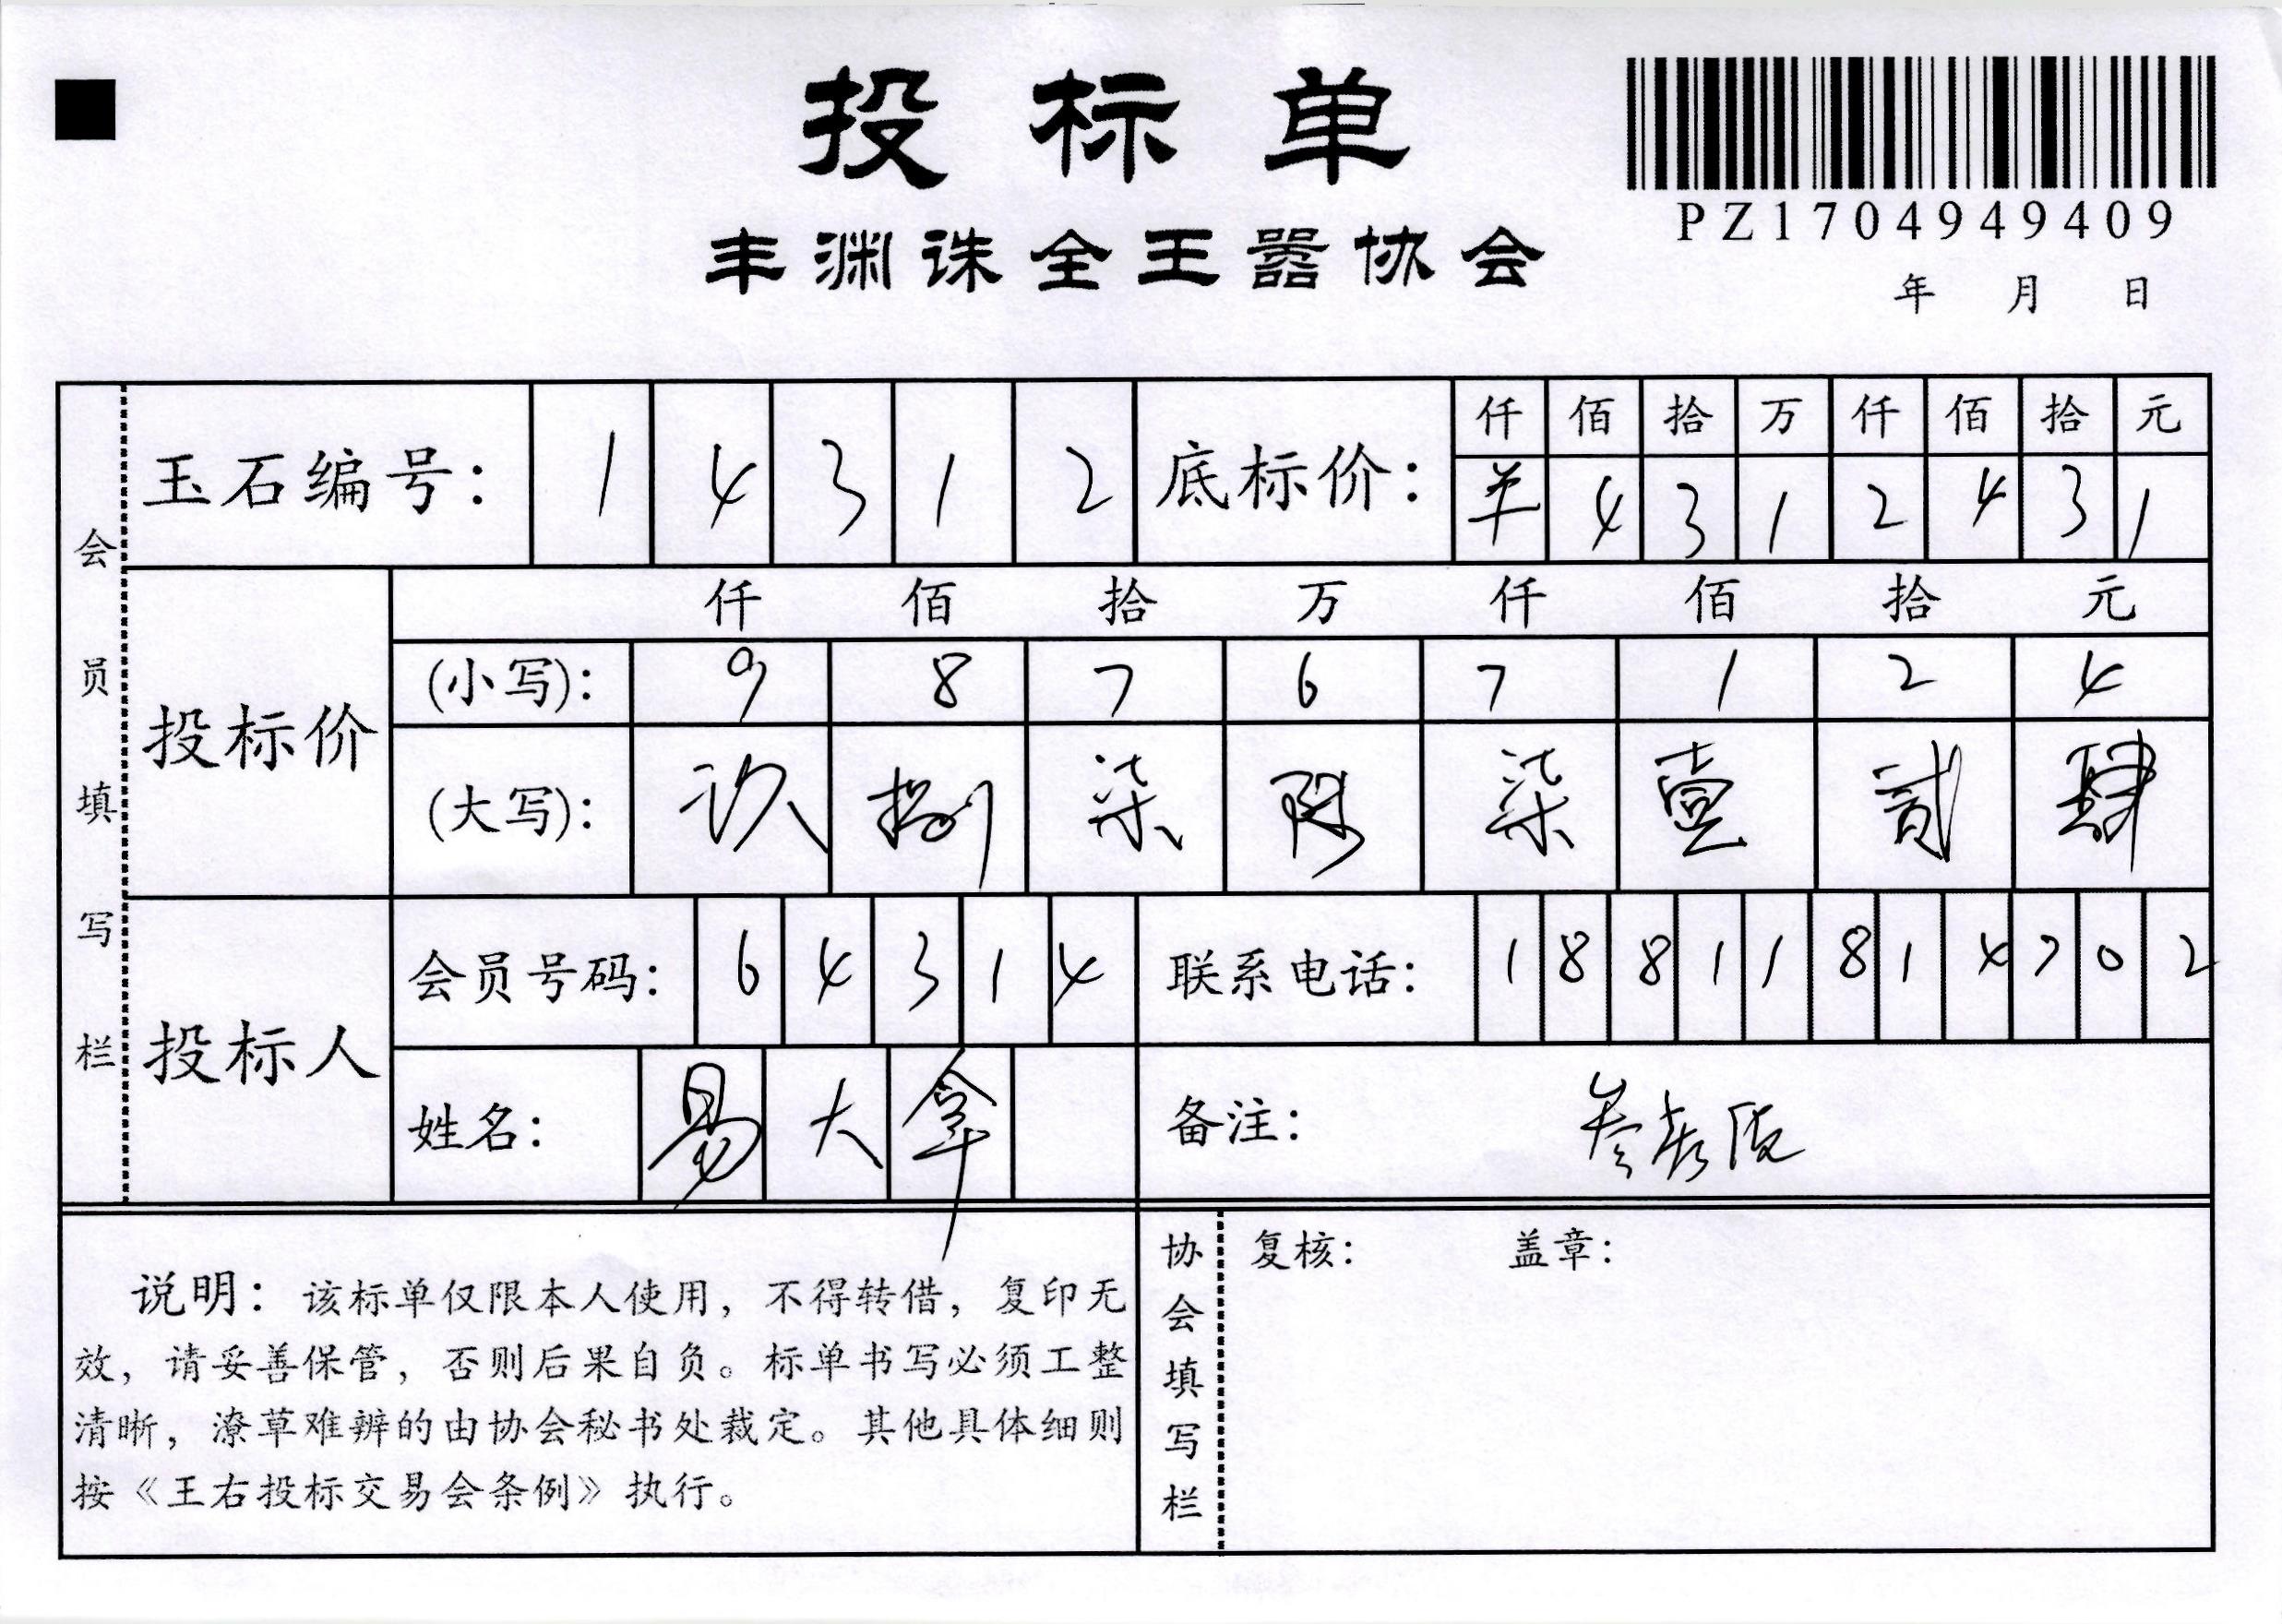 投标单
PZ1704949409
丰渊诛全王嚣协会
年 月 日
会员填写栏
玉石编号： 1 4 3 1 2
底标价： 仟 佰 拾 万 仟 佰 拾 元
羊 4 3 1 2 4 3 1
投标价
仟 佰 拾 万 仟 佰 拾 元
(小写)： 9 8 7 6 7 1 2 4
(大写)： 玖 捌 柒 陆 柒 壹 贰 肆
投标人
会员号码： 6 4 3 1 4
联系电话： 1 8 8 1 1 8 1 4 7 0 2
姓名： 易 大 拿
备注：
说明：该标单仅限本人使用，不得转借，复印无
效，请妥善保管，否则后果自负。标单书写必须工整
清晰，潦草难辨的由协会秘书处裁定。其他具体细则
按《王右投标交易会条例》执行。
协会填写栏
复核： 盖章：